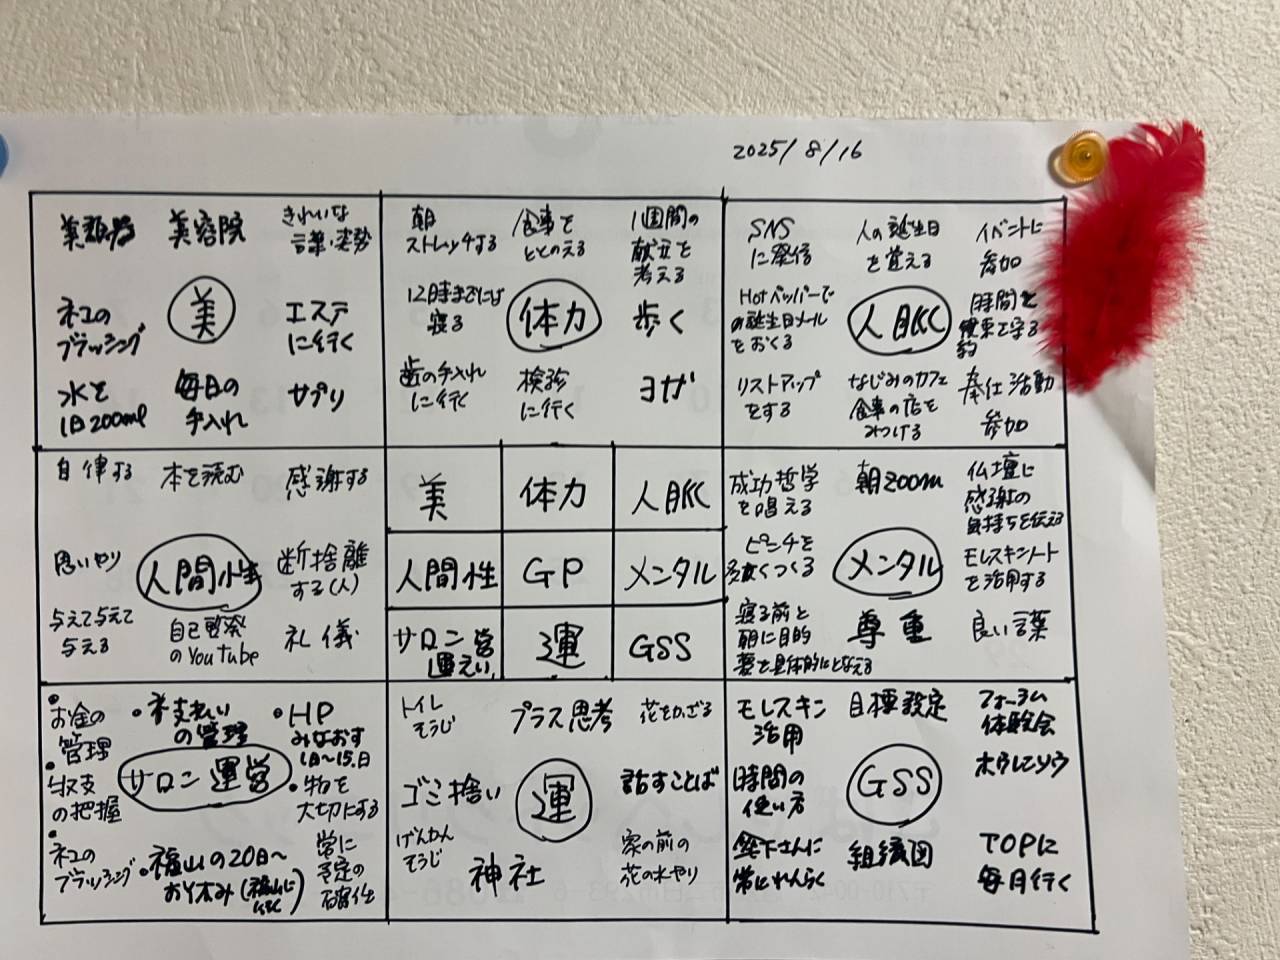 2025/8/16
美顔器
美容院
きれいな
言葉・姿勢
ネコの
ブラッシング
美
エステ
に行く
水を
1日200ml
毎日の
手入れ
サプリ
朝
ストレッチする
食事を
ととのえる
1週間の
献立を
考える
12時までには
寝る
体力
歩く
歯の手入れ
に行く
検診
に行く
ヨガ
SNS
に発信
人の誕生日
を覚える
イベントに
参加
Hotペッパーで
の誕生日メール
をおくる
人脈
時間を
約束を守る
リストアップ
をする
なじみのカフェ
食事の店を
みつける
奉仕活動
参加
自律する
本を読む
感謝する
思いやり
人間性
断捨離
する(人)
与えて与えて
与える
自己啓発
のYouTube
礼儀
美
体力
人脈
人間性
GP
メンタル
サロン運営
運
GSS
成功哲学
を唱える
朝zoom
仏壇に
感謝の
気持ちを伝える
ピンチを
多くつくる
メンタル
モレスキンノート
を活用する
寝る前と
朝に目的
夢を具体的にとなえる
尊重
良い言葉
・お金の
管理
・支払い
の管理
・HP
みなおす
1日〜15日
・収支
の把握
サロン運営
・物を
大切にする
・ネコの
ブラッシング
・福山の20日〜
お休み(福山に
行く)
常に
予定の
確仕
トイレ
そうじ
プラス思考
花をかざる
ゴミ捨い
運
話すことば
げんかん
そうじ
神社
家の前の
花の水やり
モレスキン
活用
目標設定
フォーラム
体験会
時間の
使い方
GSS
ホウレンソウ
常にれんらく
組織図
TOPに
毎月行く